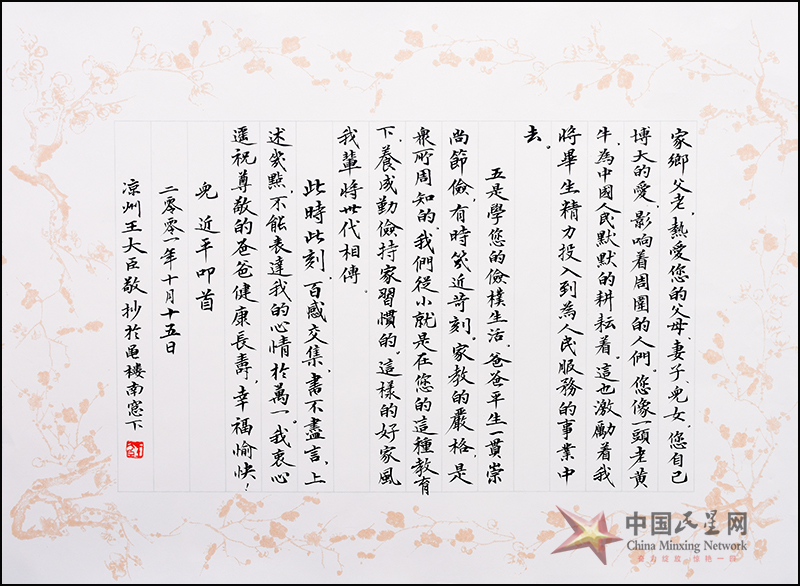 家鄉父老，熱愛您的父母、妻子、兒女，您自己
博大的愛，影响着周圍的人們。您像一頭老黃
牛，為中國人民默默的耕耘着。這也激勵着我
將畢生精力投入到為人民服務的事業中
去。
五是學您的儉樸生活，爸爸平生一貫崇
尚節儉，有時幾近苛刻。家教的嚴格，是
衆所周知的，我們從小就是在您的這種教育
下，養成勤儉持家習慣的。這樣的好家風
我輩將世代相傳。
此時此刻，百感交集，書不盡言，上
述幾點，不能表達我的心情於萬一。我衷心
遥祝尊敬的爸爸健康長壽，幸福愉快！
兒 近平叩首
二零零一年十月十五日
凉州王大臣敬抄於樓南窓下
中国民星网
China Minxing Network